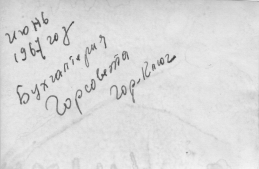 июнь
1967 год
Бухгалтерия
Горсовета
Гор-Ключ